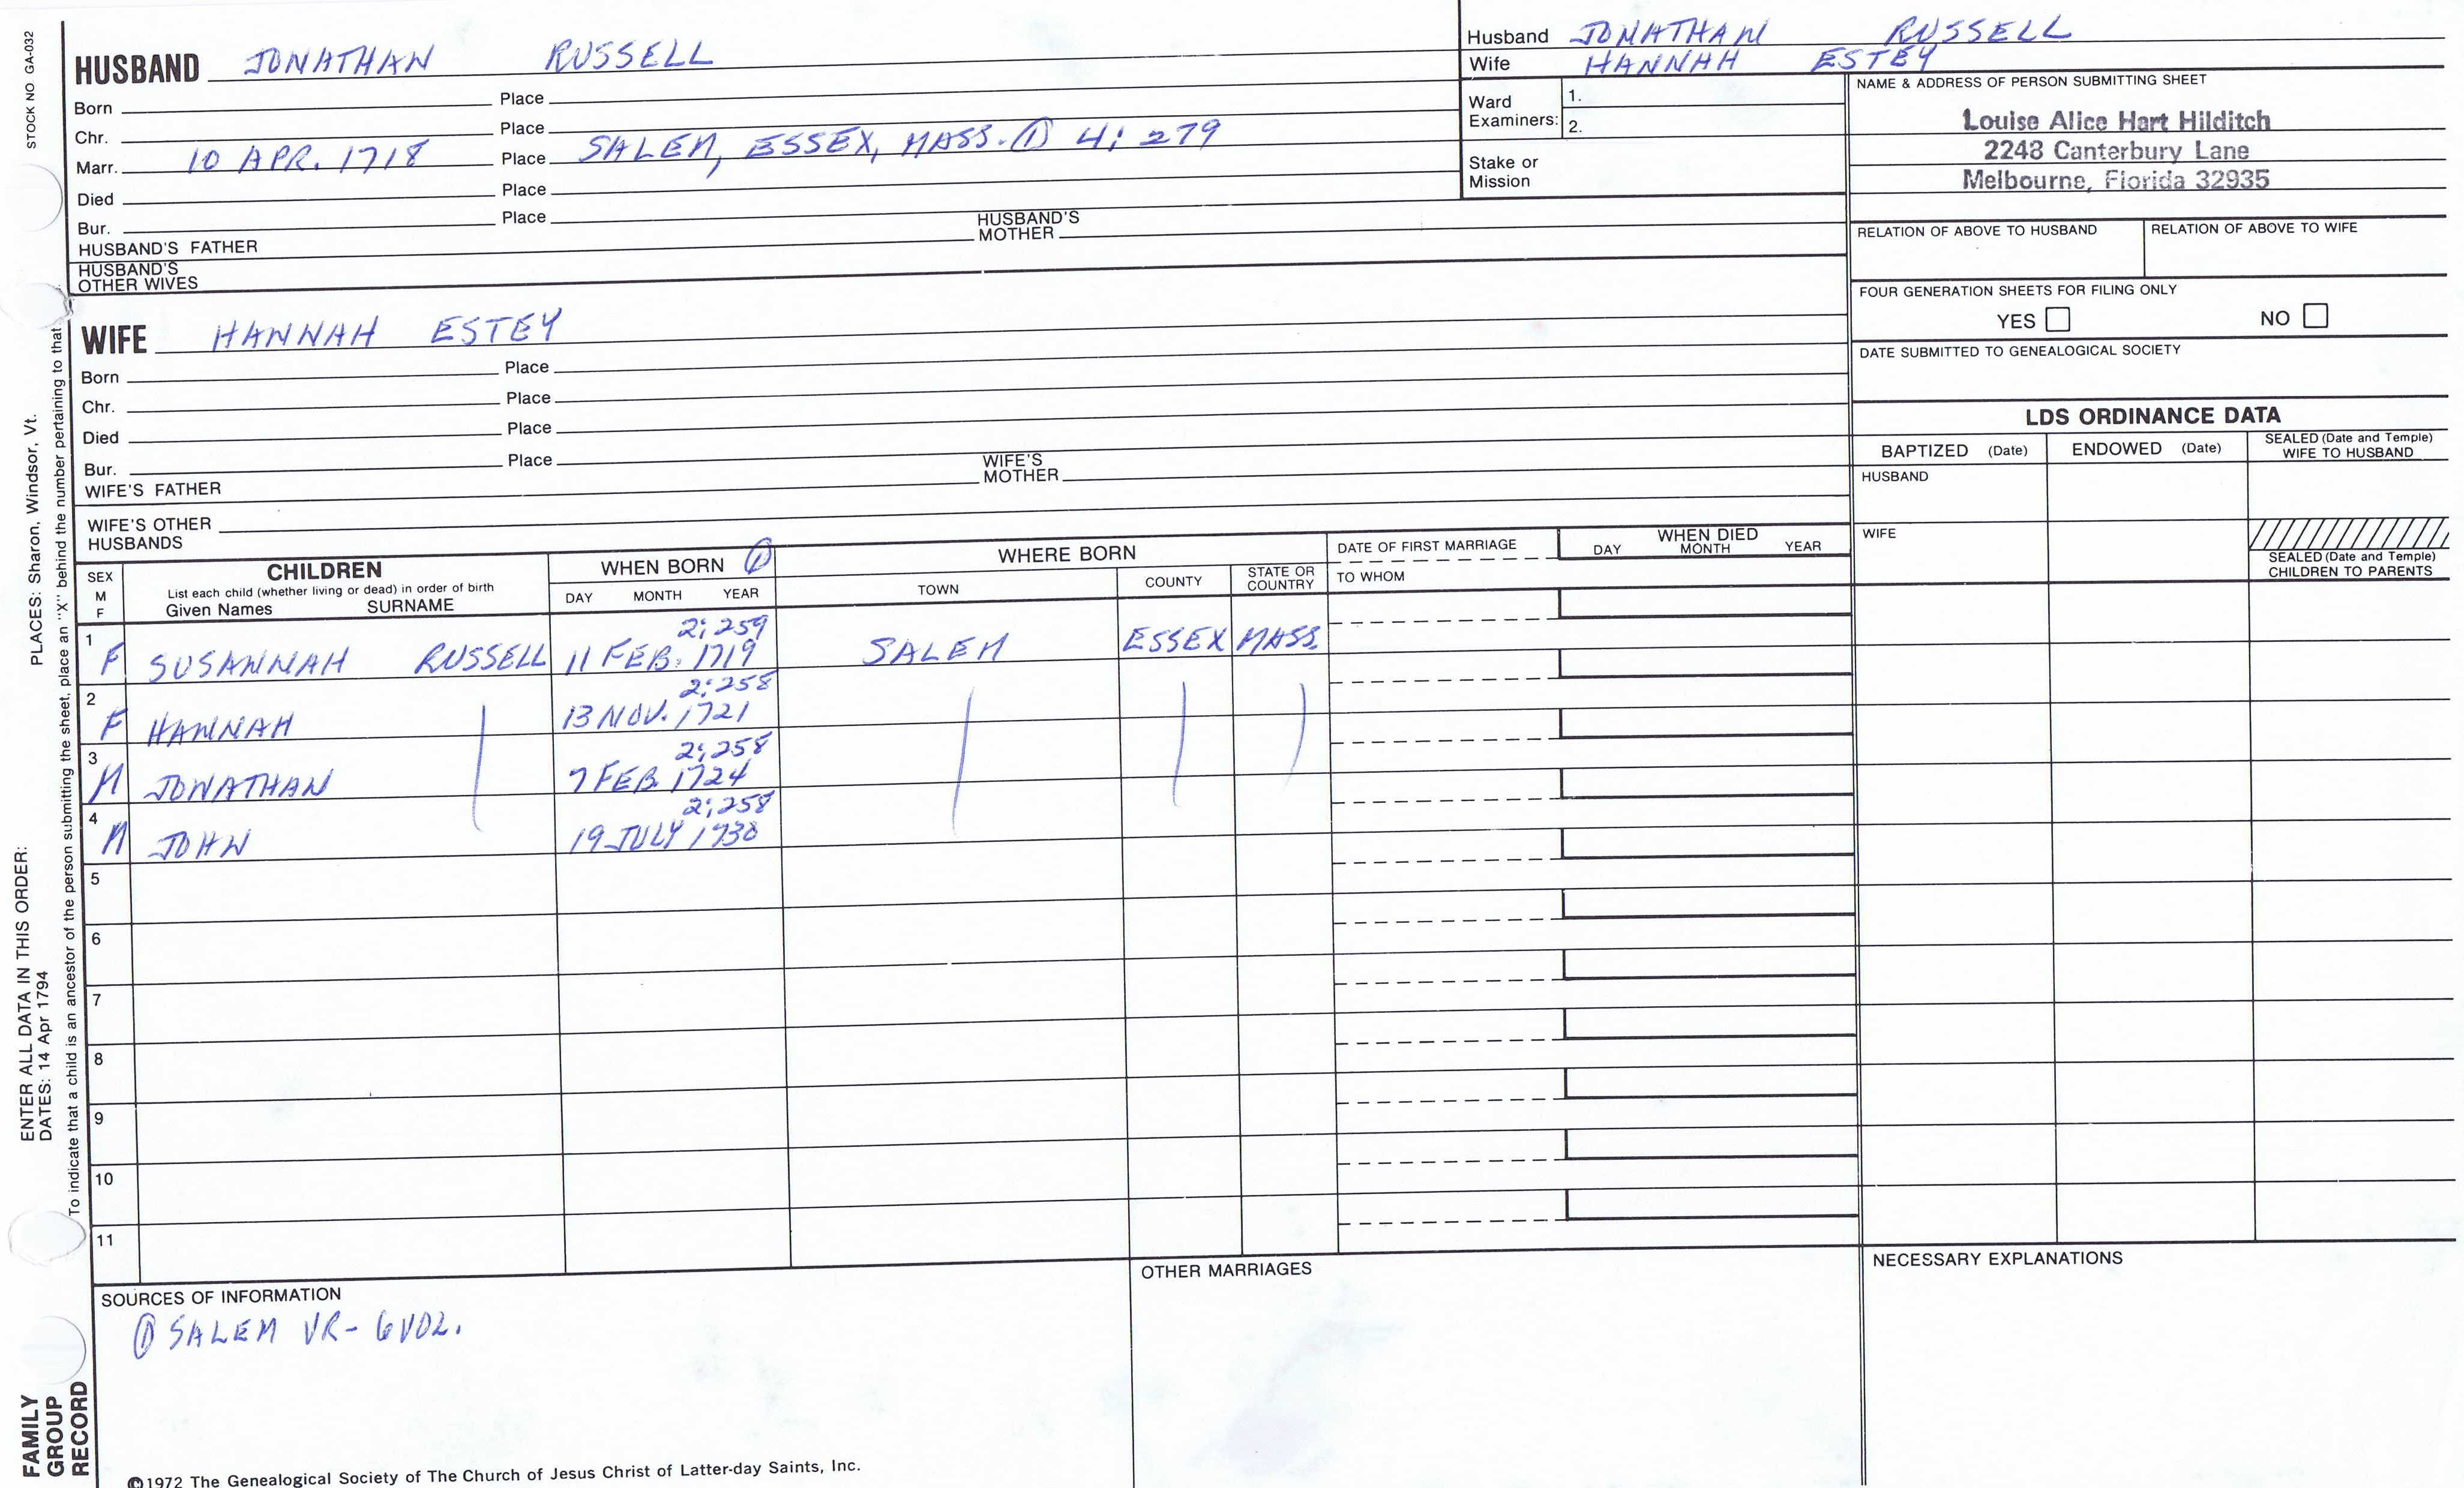 STOCK NO GA-032
HUSBAND JONATHAN RUSSELL
Born Place
Chr. Place
Marr. 10 APR. 1718 Place SALEM, ESSEX, MASS. ① 4; 279
Died Place
Bur. Place
HUSBAND'S FATHER HUSBAND'S MOTHER
HUSBAND'S OTHER WIVES
Husband JONATHAN RUSSELL
Wife HANNAH ESTEY
Ward Examiners: 1.
2.
Stake or Mission
NAME & ADDRESS OF PERSON SUBMITTING SHEET
Louise Alice Hart Hilditch
2248 Canterbury Lane
Melbourne, Florida 32935
RELATION OF ABOVE TO HUSBAND RELATION OF ABOVE TO WIFE
FOUR GENERATION SHEETS FOR FILING ONLY
YES NO
DATE SUBMITTED TO GENEALOGICAL SOCIETY
WIFE HANNAH ESTEY
Born Place
Chr. Place
Died Place
Bur. Place
WIFE'S FATHER WIFE'S MOTHER
WIFE'S OTHER HUSBANDS
LDS ORDINANCE DATA
BAPTIZED (Date) ENDOWED (Date) SEALED (Date and Temple) WIFE TO HUSBAND
HUSBAND
WIFE
SEALED (Date and Temple) CHILDREN TO PARENTS
SEX M F
CHILDREN
List each child (whether living or dead) in order of birth
Given Names SURNAME
WHEN BORN ①
DAY MONTH YEAR
WHERE BORN
TOWN COUNTY STATE OR COUNTRY
DATE OF FIRST MARRIAGE
TO WHOM
WHEN DIED
DAY MONTH YEAR
2; 259
1 F SUSANNAH RUSSELL 11 FEB. 1719 SALEM ESSEX MASS.
2; 258
2 F HANNAH 13 NOV. 1721
2; 258
3 M JONATHAN 7 FEB. 1724
2; 258
4 M JOHN 19 JULY 1730
5
6
7
8
9
10
11
SOURCES OF INFORMATION
① SALEM VR- 6 VOL.
OTHER MARRIAGES
NECESSARY EXPLANATIONS
©1972 The Genealogical Society of The Church of Jesus Christ of Latter-day Saints, Inc.
FAMILY GROUP RECORD
ENTER ALL DATA IN THIS ORDER:
DATES: 14 Apr 1794
PLACES: Sharon, Windsor, Vt.
To indicate that a child is an ancestor of the person submitting the sheet, place an "X" behind the number pertaining to that